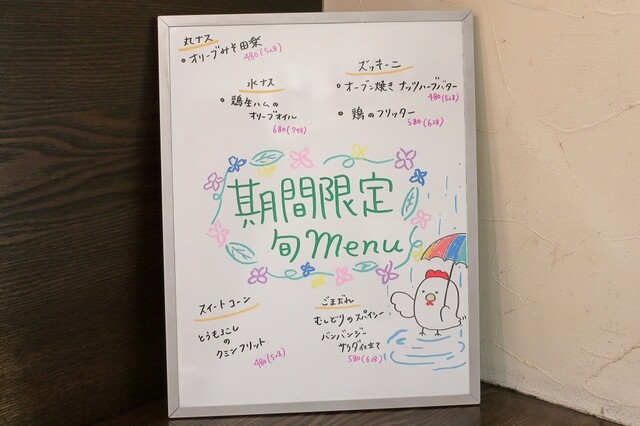 丸ナス
・オリーブみそ田楽
480(528)
水ナス
・鶏生ハムの
オリーブオイル
680(748)
ズッキーニ
・オーブン焼き ナッツハーブバター
480(528)
・鶏のフリッター
580(638)
期間限定
旬menu
スイートコーン
とうもろこし
の
クミンフリット
480(528)
ごまだれ
むしどりのスパイシー
バンバンジー
サラダ仕立て
580(638)